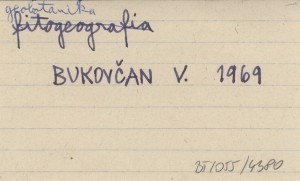 geobotanika
fitogeografia
BUKOVČAN V. 1969
BT/055/4380